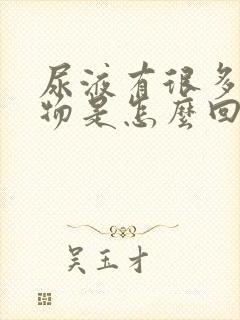 尿液有很多
物是怎麼回
吴玉才